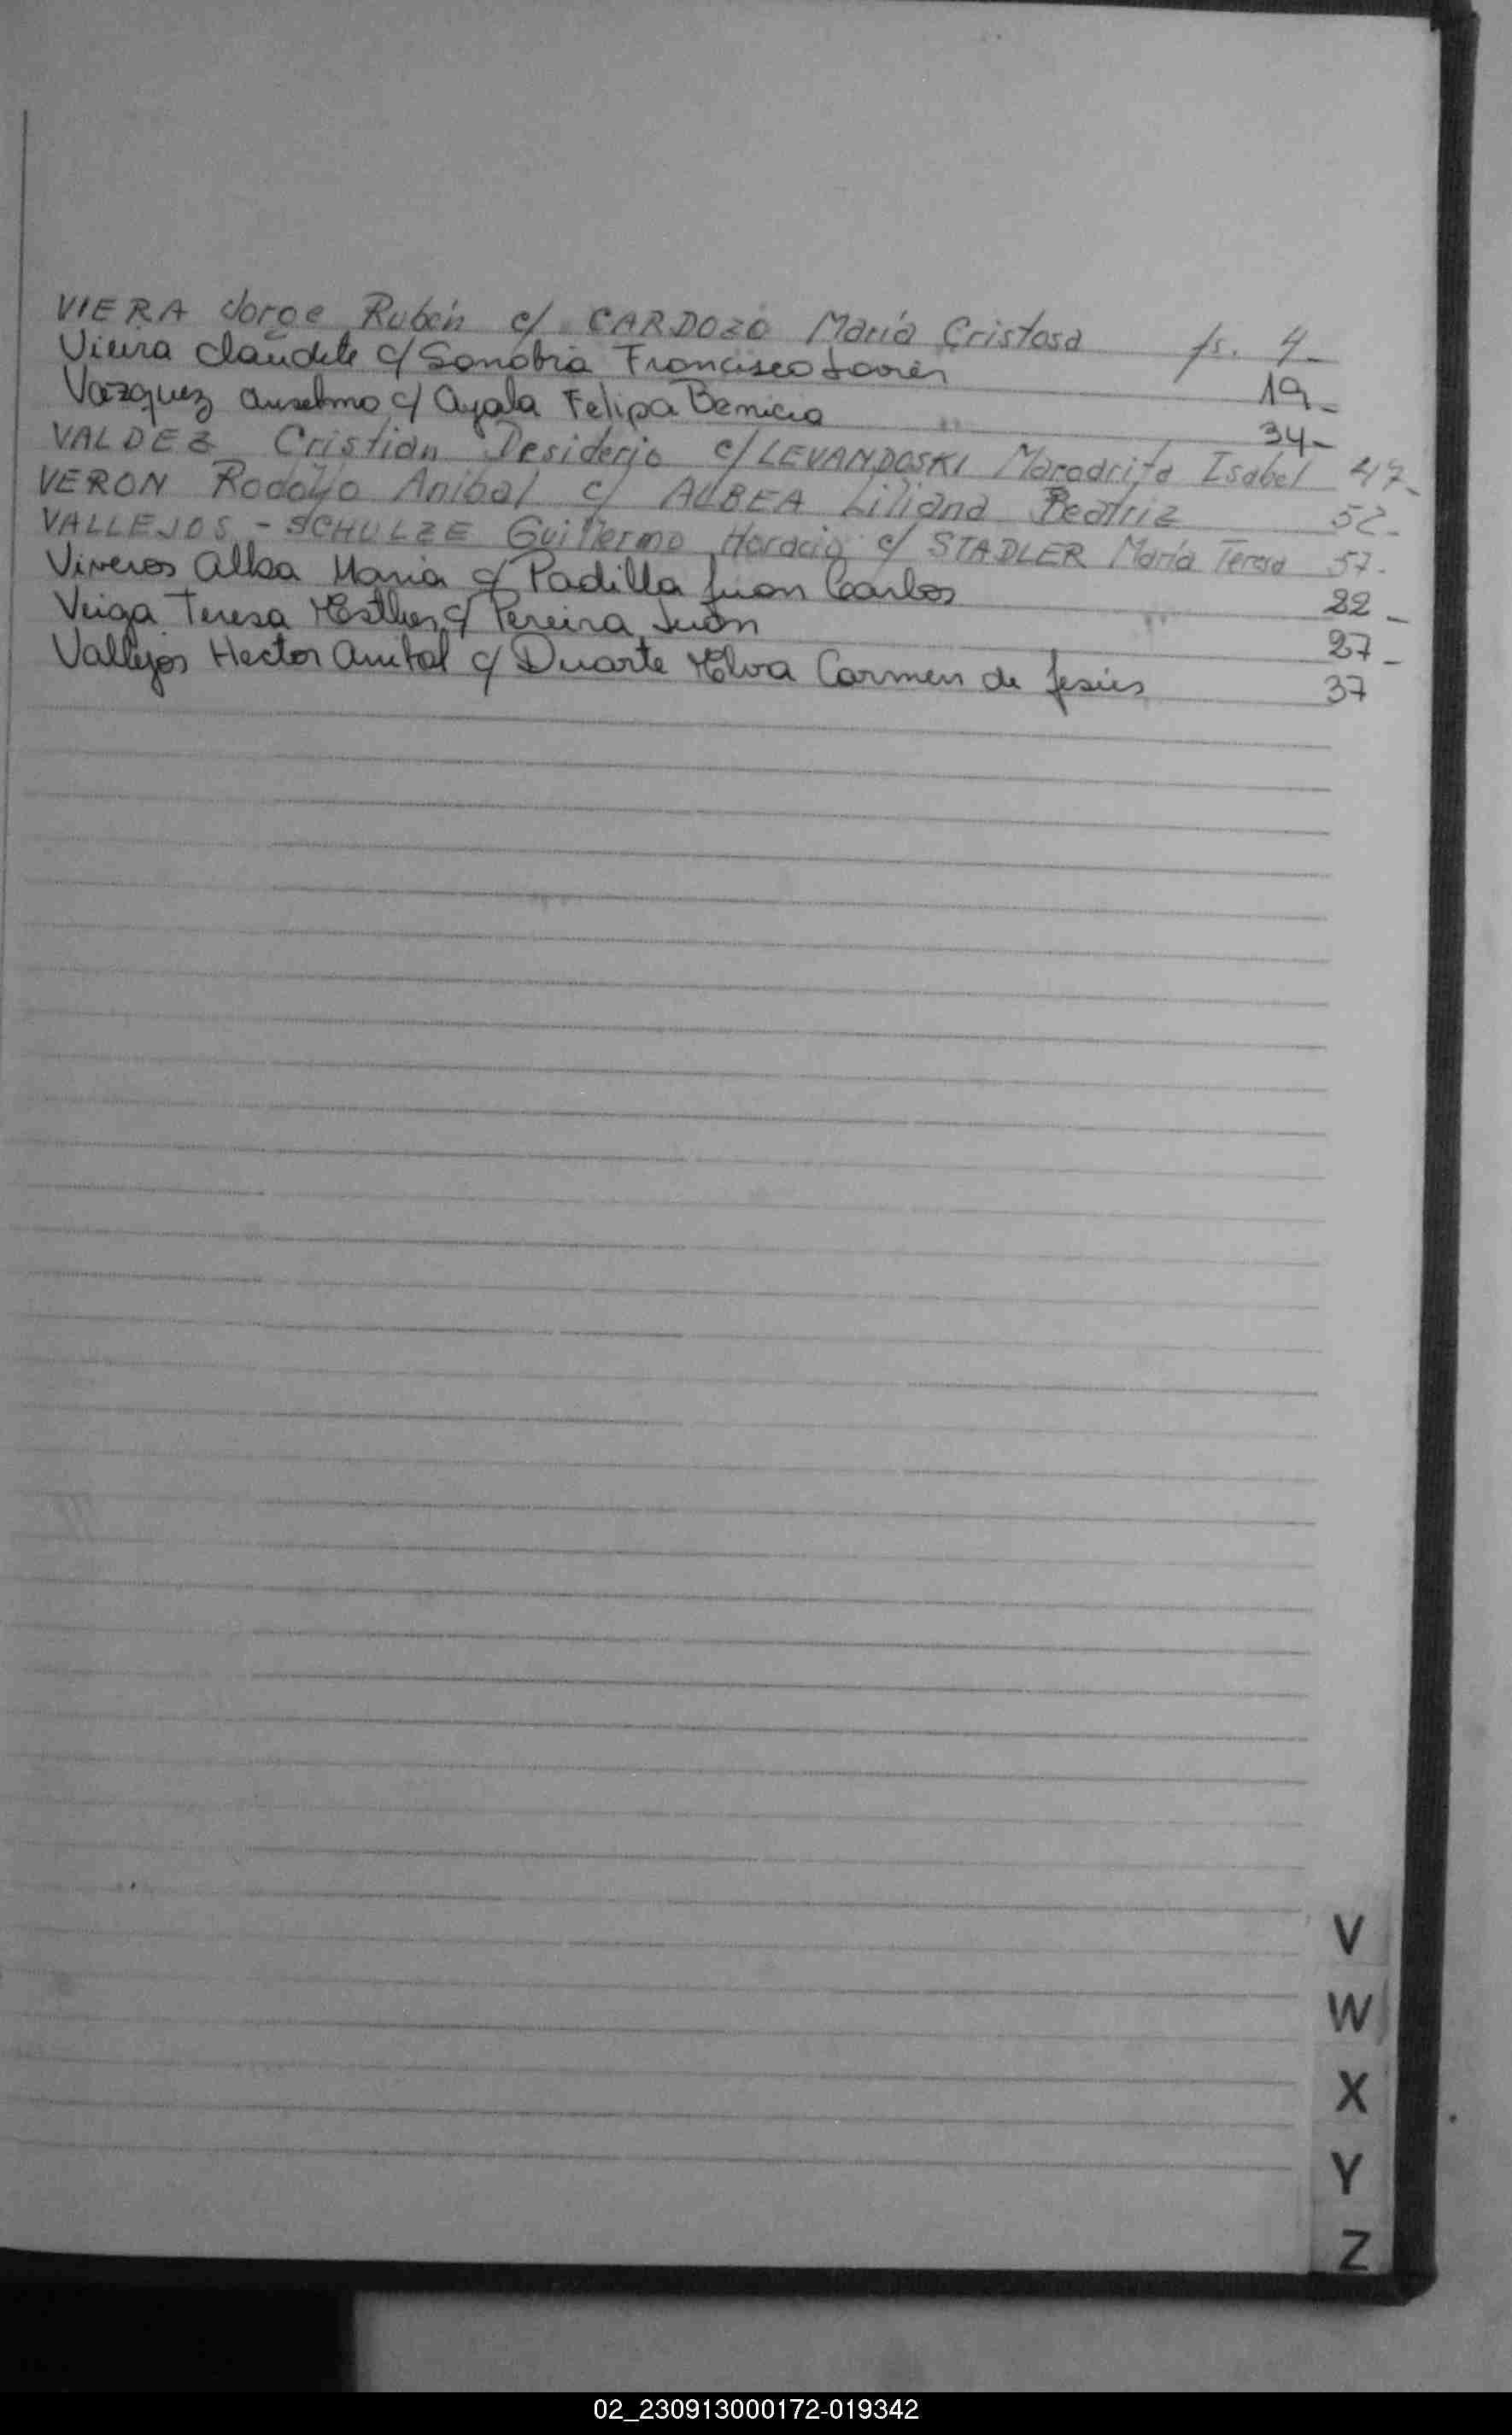 VIERA Jorge Rubén c/ CARDOZO María Cristosa fs. 4-
Vieira Claudete c/ Sanabria Francisco Javier 19-
Vazquez Anselmo c/ Ayala Felipa Benicia " 34-
VALDEZ Cristian Desiderio c/ LEVANDOSKI Margarita Isabel 47-
VERON Rodolfo Anibal c/ Liliana Beatriz 52-
VALLEJOS - SCHULZE Guillermo Horacio c/ STADLER María Teresa 57-
Viveros Alba Maria c/ Padilla Juan Carlos " 22-
Veiga Teresa Esther c/ Pereira Juan 27-
Vallejos Hector Anibal c/ Duarte Elva Carmen de Jesús 37
V
W
X
Y
Z
02_230913000172-019342